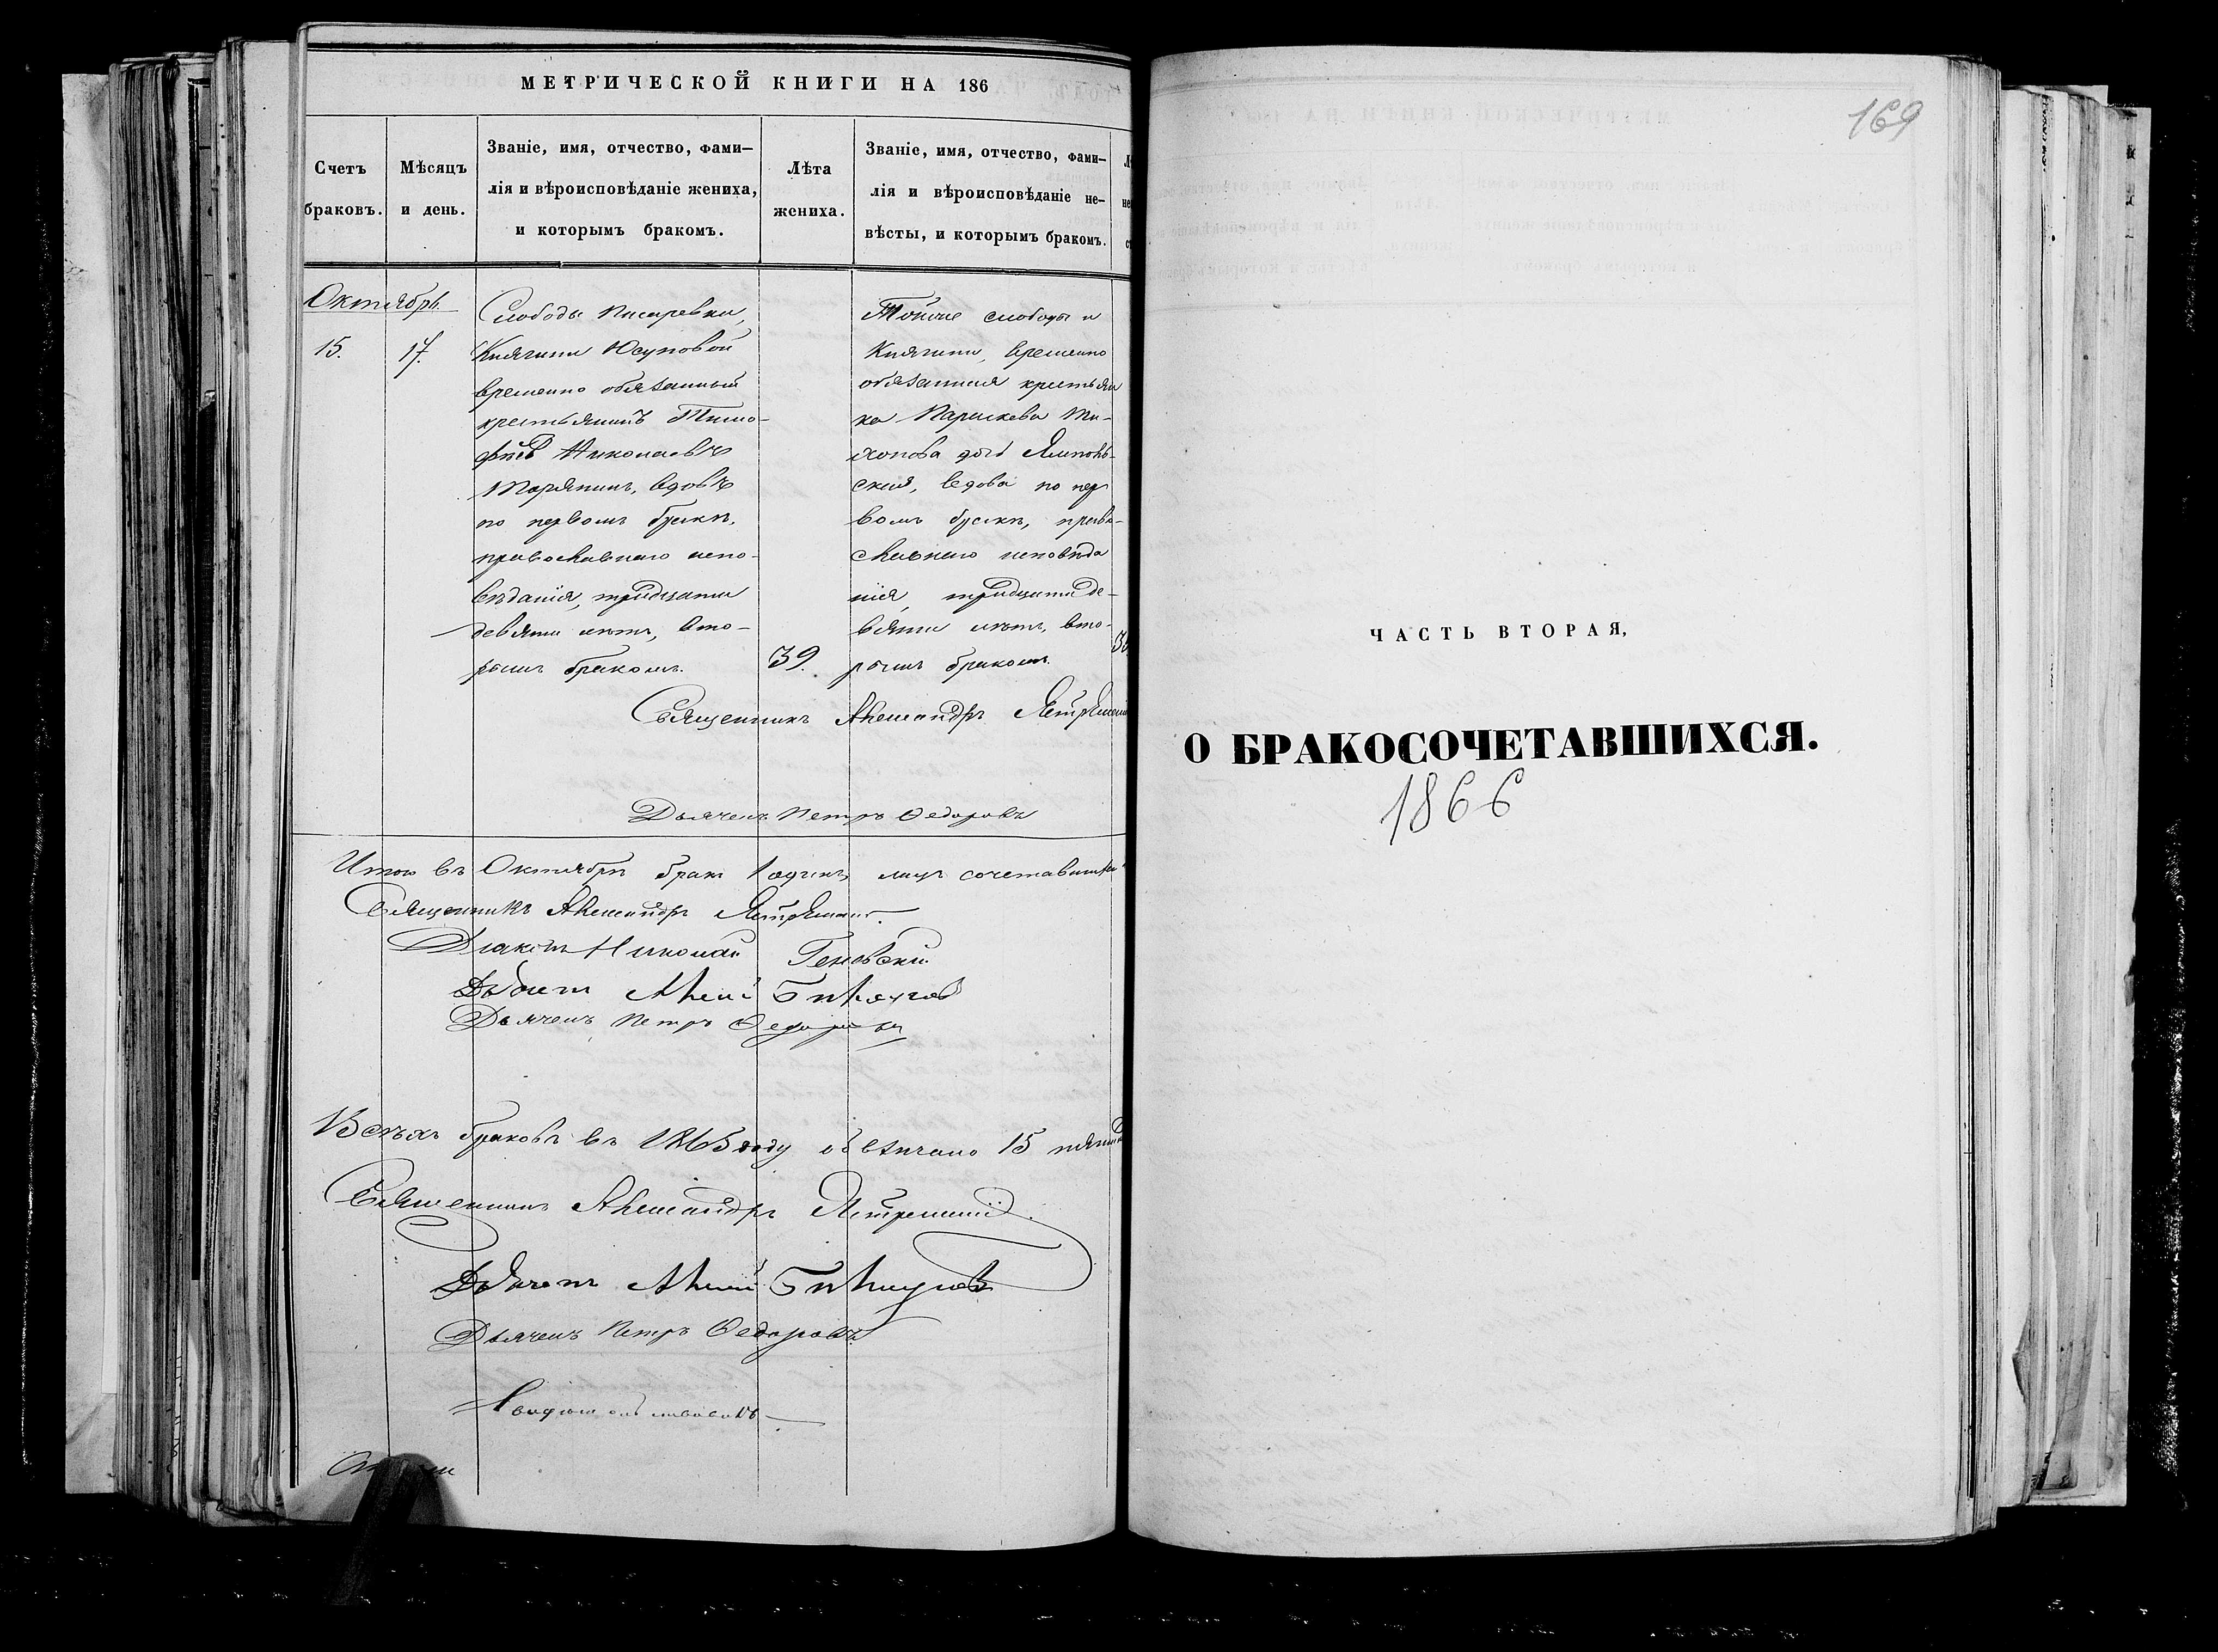 МЕТРИЧЕСКОЙ КНИГИ НА 186
Счетъ браковъ.
Мѣсяцъ и день.
Званіе, имя, отчество, фами-
лія и вѣроисповѣданіе жениха,
и которымъ бракомъ.
Лѣта
жениха.
Званіе, имя, отчество, фами-
лія и вѣроисповѣданіе не-
вѣсты, и которымъ бракомъ.
Октябрь.
15.
17.
Слободы Писаревки,
Княгини Юсуповой
временно обязанный
крестьянинъ Тимо-
фѣй Николаевъ
вдовъ
по первомъ бракѣ,
православнаго испо-
вѣданія, тридцати
девяти лѣтъ, вто-
рымъ бракомъ.
39.
Тойже слободы и
Княгини, временно
обязанная крестьян
ка Параскева Ти-
хонова дочь
вдова по пер
вомъ бракѣ, правo-
славнаго исповѣда
нія, тридцати де-
вяти лѣтъ, вто-
рымъ бракомъ.
Священникъ Александръ
Дьячекъ Петръ Ѳедоровъ
Итого въ Октябрѣ бракъ 1 одинъ, лицъ сочетавших
Священникъ Александръ
Діаконъ Николай
Дьячекъ
Дьячекъ Петръ Ѳедоровъ
Всѣхъ браковъ въ 1865 году обвѣнчано 15
Священникъ Александръ
Дьячекъ
Дьячекъ Петръ Ѳедоровъ
169
ЧАСТЬ ВТОРАЯ,
О БРАКОСОЧЕТАВШИХСЯ.
1866